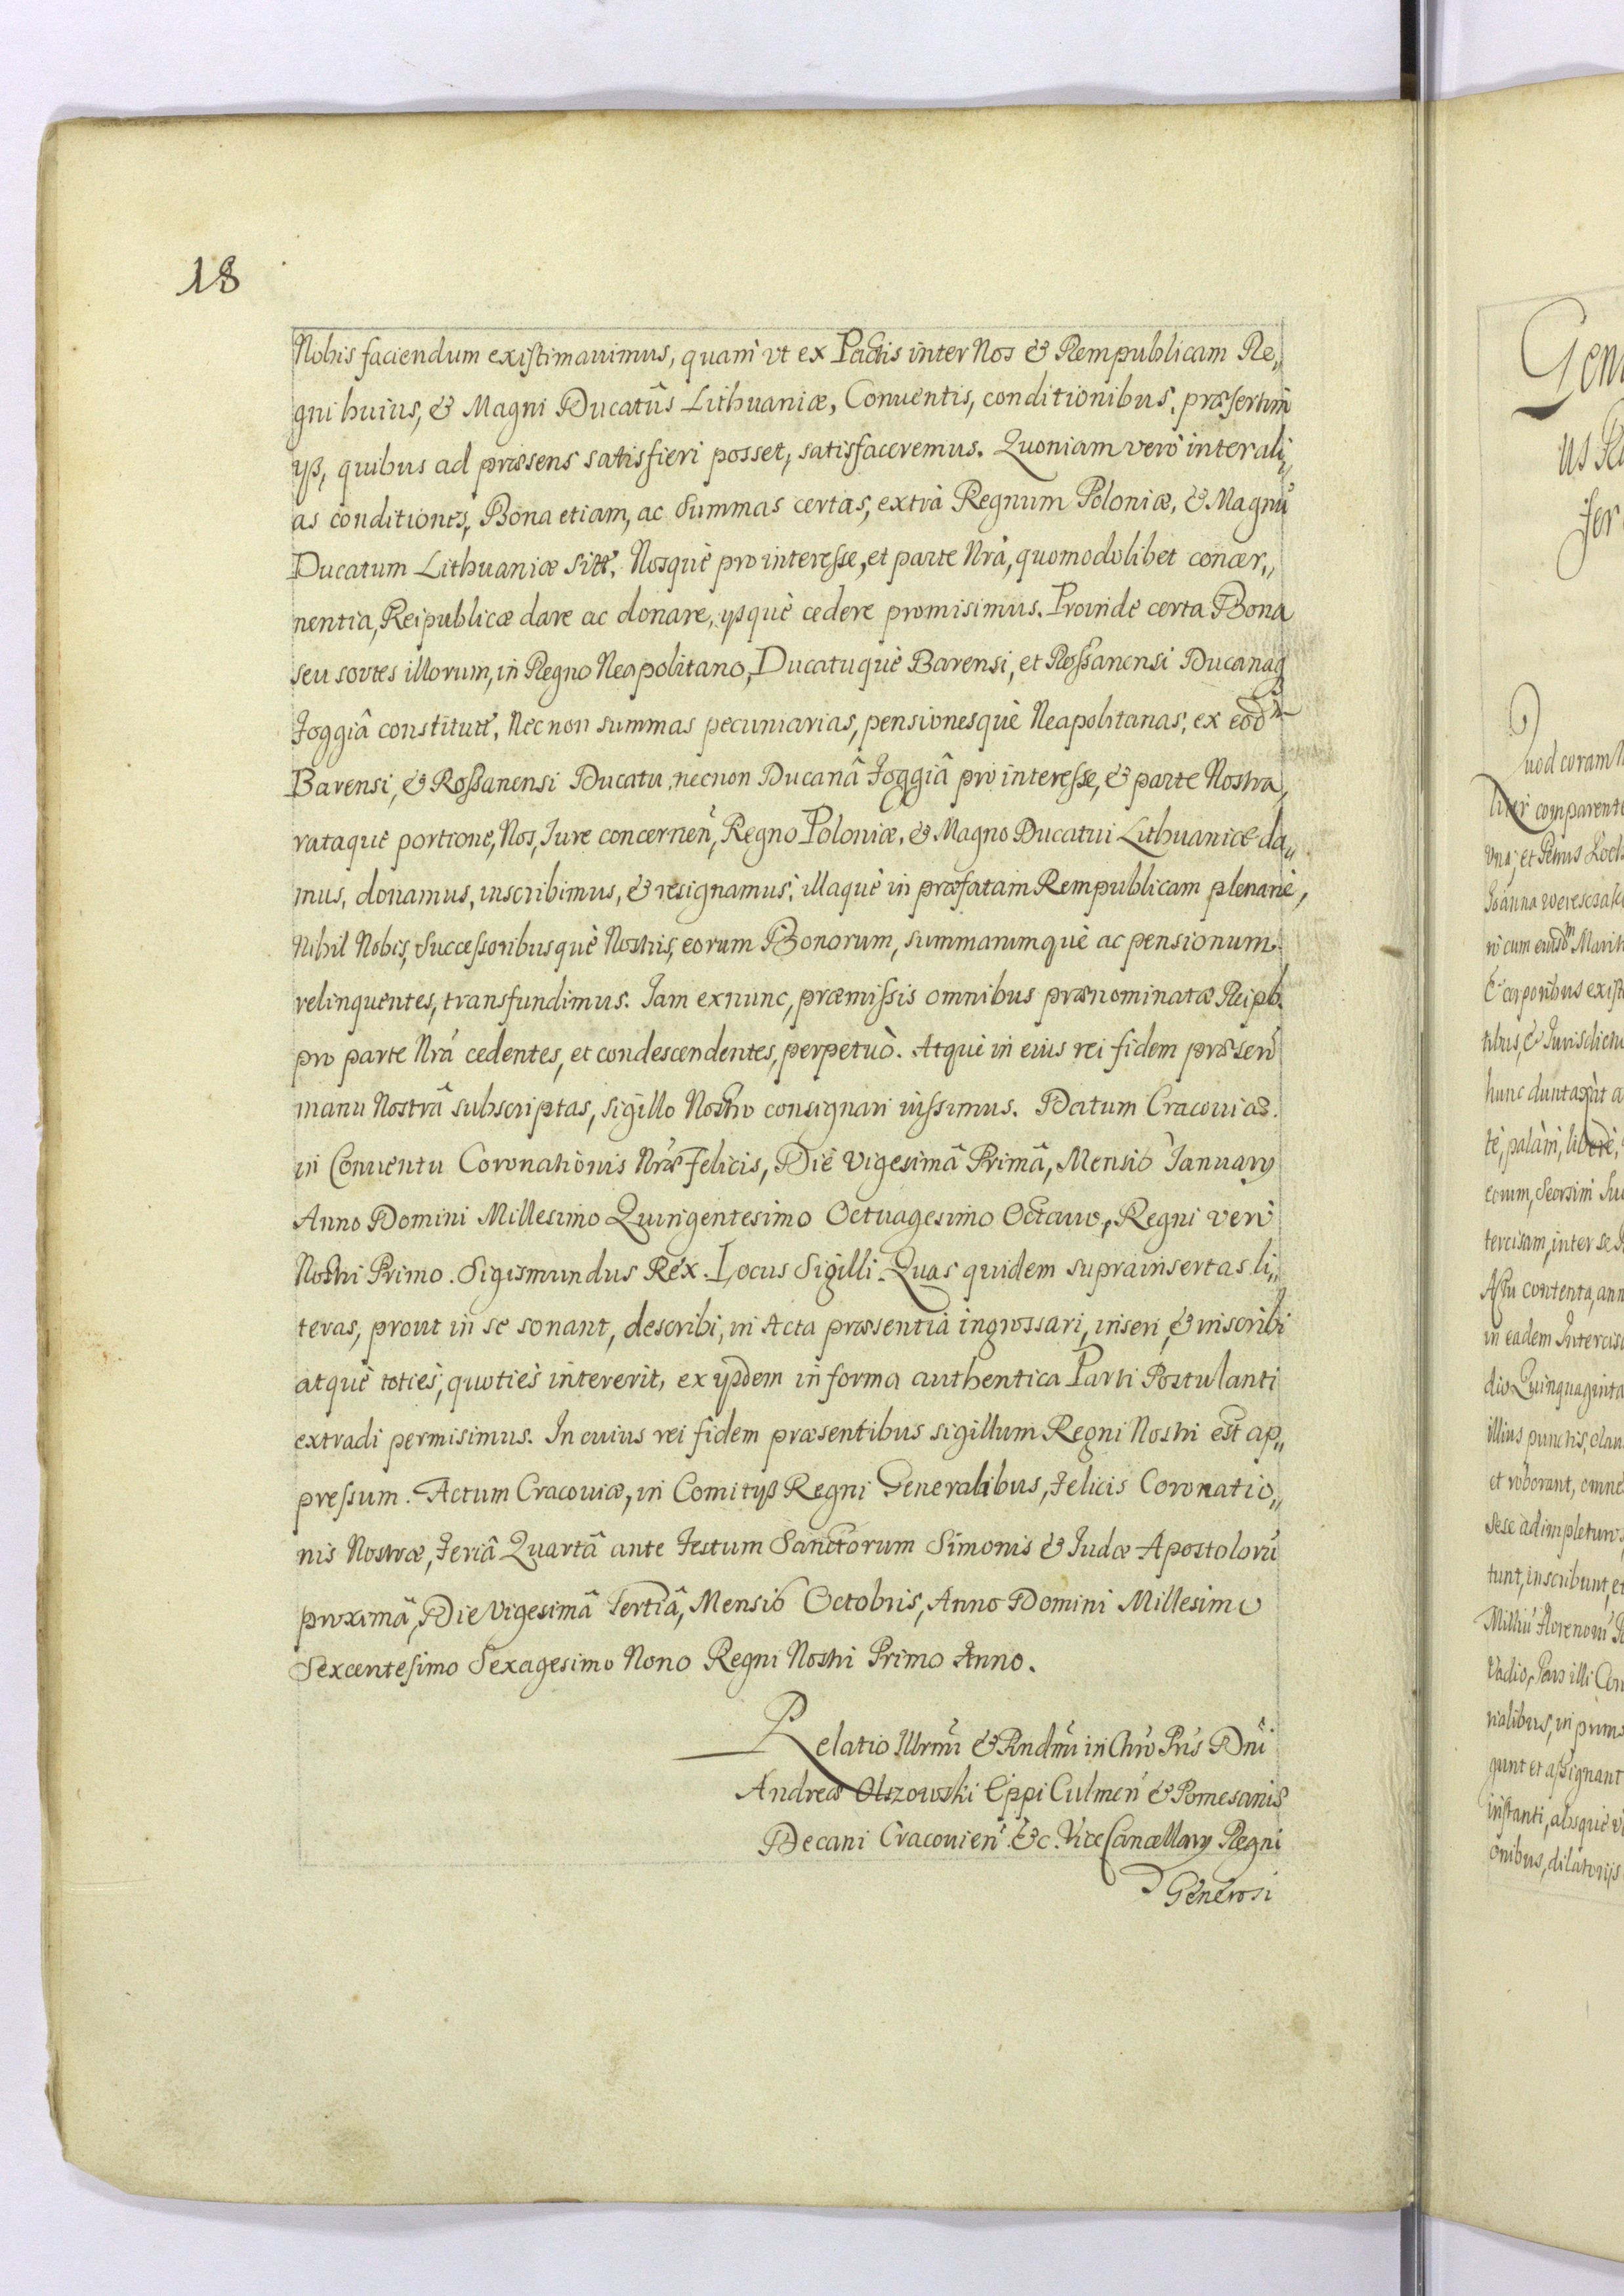 18
Nobis faciendum existimauimus, quam vt ex Pactis inter Nos & Rempublicam Re„
gni huius, & Magni Ducatûs Lithuaniæ, Conuentis, conditionibus, præsertim
ÿs, quibus ad præsens satisfieri posset, satisfaceremus. Quoniam verò inter ali„
as conditiones, Bona etiam, ac Summas certas, extrà Regnum Poloniæ, & Magnũ
Ducatum Lithuaniæ sitt, Nosquè pro interesse, et parte Nrâ, quomodolibet concer„
nentia, Reipublicæ dare ac donare, ÿsquè cedere promisimus. Proinde certa Bona
seu sortes illorum, in Regno Neapolitano, Ducatuquè Barensi, et Rossanensi Ducanaq
Foggiâ constitutt, Nec non summas pecuniarias, pensionesquè Neapolitanas, ex eod̃m
Barensi, & Rossanensi Ducatu, necnon Ducanâ Foggiâ pro interesse, & parte Nostra,
rataquè portione, Nos, Iure concerneñ, Regno Poloniæ, & Magno Ducatui Lithuaniæ da„
mus, donamus, inscribimus, & resignamus, illaquè in præfatam Rempublicam plenariè,
Nihil Nobis, Successoribusquè Nostris, eorum Bonorum, summarumquè ac pensionum
relinquentes, transfundimus. Iam exnunc, præmissis omnibus prænominatæ Reipb.
pro parte Nrâ cedentes, et condescendentes, perpetuò. Atquè in eius rei fidem præseñ
manu Nostrâ subscriptas, sigillo Nostro consignari iussimus. Datum Cracouiæ.
in Conuentu Coronationis Nræ Felicis, Die Vigesimâ Primâ, Mensis Ianuarÿ
Anno Domini Millesimo Quingentesimo Octuagesimo Octauo, Regni verò
Nostri Primo. Sigismundus Rex. Locus Sigilli. Quas quidem suprainsertas li„
teras, prout in se sonant, describi, in Acta præsentia ingrossari, inseri, & inscribi
atquè totiès, quotiès intererit, ex ÿsdem in forma authentica Parti Postulanti
extradi permisimus. In cuius rei fidem præsentibus sigillum Regni Nostri est ap„
pressum. Actum Cracouiæ, in Comitÿs Regni Generalibus, Felicis Coronatio„
nis Nostræ, Feriâ Quartâ ante Festum Sanctorum Simonis & Iudæ Apostolorũ
proximâ, Die Vigesimâ Tertiâ, Mensis Octobris, Anno Domini Millesimo
Sexcentesimo Sexagesimo Nono Regni Nostri Primo Anno.
Relatio Illrmi & Rndmi in Chro Pris Dni
Andreæ Olszowski Eppi Culmeñ & Pomesanis
Decani Cracouieñ &c. Vice Cancellarÿ Regni
Generosi
Gen
uod coram
comparent
vna, et Petrus
Ioanna
ri cum
& corporibus
tibus, &
hunc duntaxat a
tè, palàm, liberè,
eorum, Seorsim
tercisam, inter se
contenta,
in eadem
dio Quinquaginta
illius punctis,
et roborant, omne
sese adimpleturos
tunt, inscribunt, et
Vadio, Pars illi
nialibus, in
gunt et assignant
instanti, absquè
onibus, dilatorijs